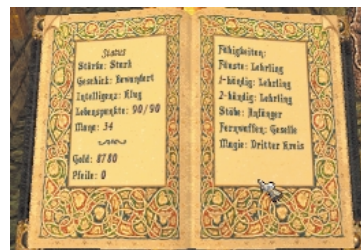 Status
Stärke: Stark
Geschick: Bewundert
Intelligenz: Klug
Lebenspunkte: 90/90
Mana: 34
Gold: 8780
Pfeile: 0
Fähigkeiten:
Fäuste: Lehrling
1-händig: Lehrling
2-händig: Lehrling
Stäbe: Anfänger
Fernwaffen: Geselle
Magie: Dritter Kreis